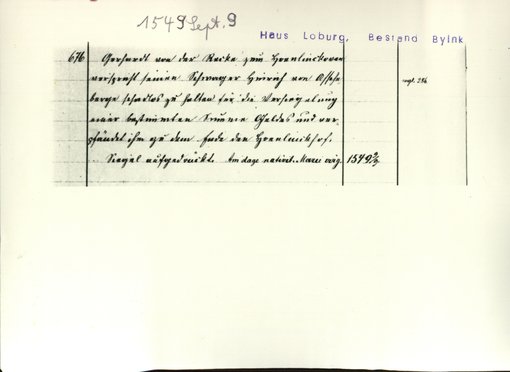 1549 Sept. 9
Haus Loburg, Bestand Byink
676 Gerhardt von der Recke zum
verspricht seinen Schwager Hinrich von
berge schadlos zu halten für die Versiegelung
einer bestimmten Summe Geldes und ver-
pfändet ihm zu dem Ende den
Siegel aufgedrückt. Am dage nativit. Marie virg. 1549 9/9